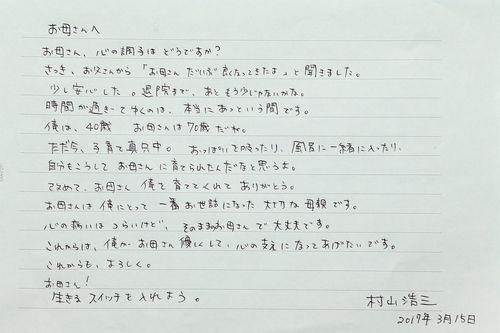 お母さんへ
お母さん、心の調子はどうですか?
さっき、お父さんから「お母さんだいぶ良くなってきたよ」と聞きました。
少し安心した。退院まで、あともう少しじゃないかな。
時間が過ぎてゆくのは、本当にあっという間です。
俺は、40歳 お母さんは70歳だね。
ただ今、子育て真只中。おっぱいを吸ったり、風呂に一緒に入ったり、
自分もこうしてお母さんに育てられたんだなと思うよ。
改めて、お母さん俺を育ててくれてありがとう。
お母さんは俺にとって一番お世話になった大切な母親です。
心の病いはつらいけど、そのままのお母さんで大丈夫です。
これからは、俺がお母さん優しくして、心の支えになってあげたいです。
これからも、よろしく。
お母さん!
生きるスイッチを入れよう。
村山浩三
2017年3月15日